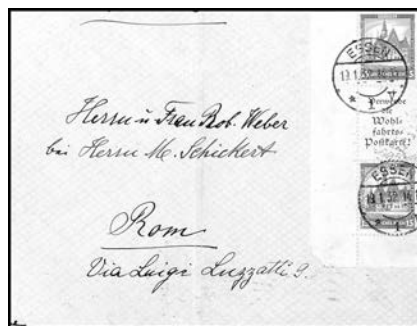 Herrn u Frau Rob. Weber
bei Herrn M. Schickert
Rom
Via Luigi Luzzatti 9.
ESSEN
Verwende
die
Wohl-
fahrts-
Postkarte!
ESSEN